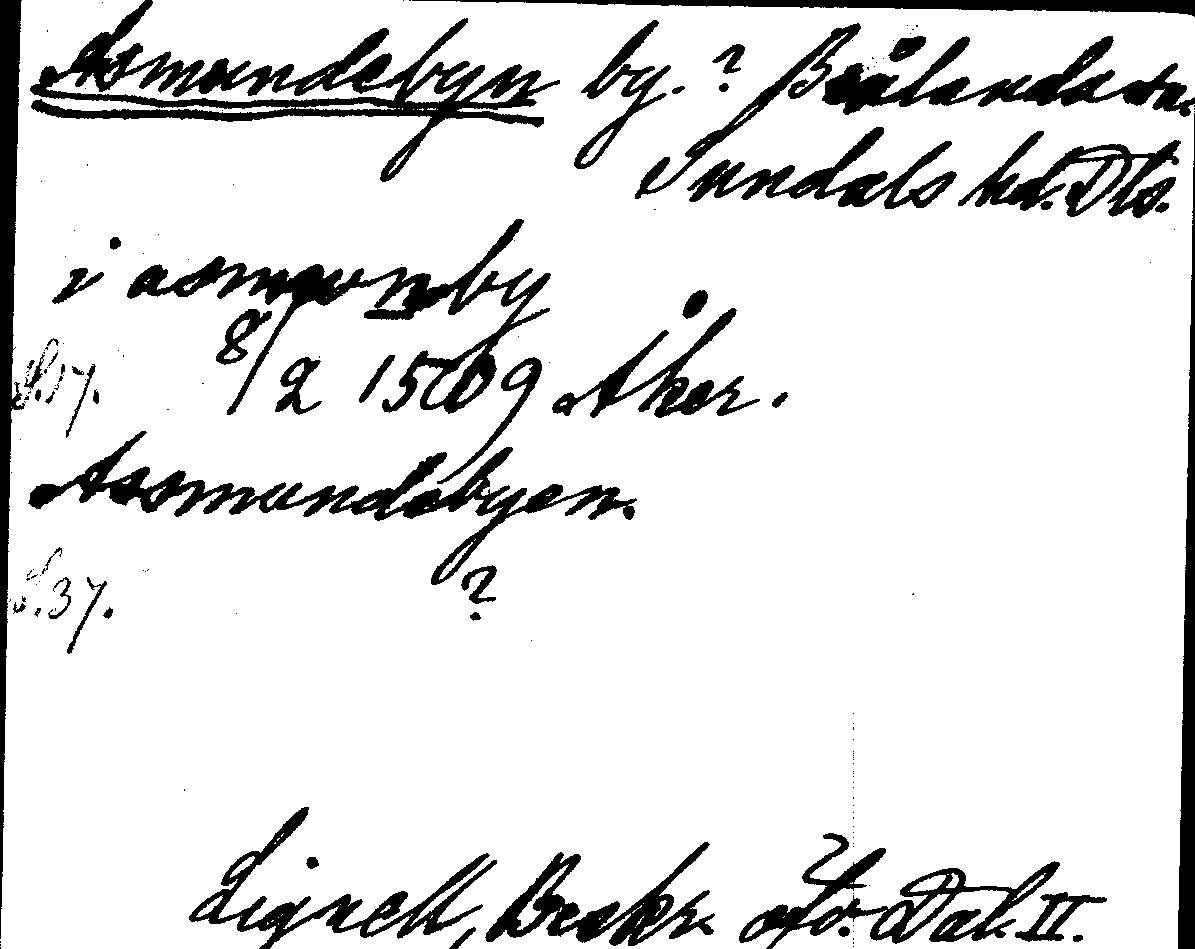 Asmundebyn by.? Brålanda sn.
Sundals hd. Dls.
i asmunby
S.17. 8/2 1509 Åker.
Assmundebyen.
S.37. ?
Lignell, Beskr. öfv. Dal. II.